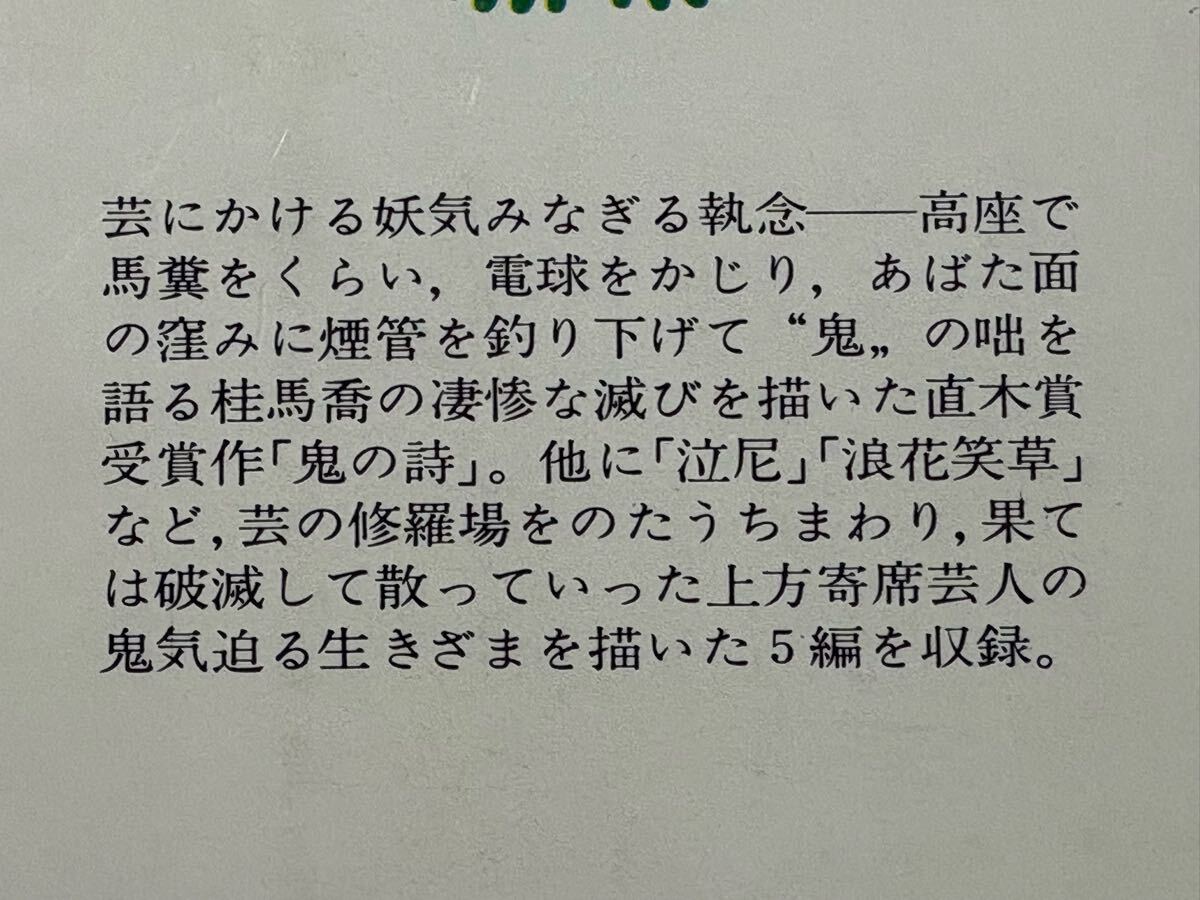 芸にかける妖気みなぎる執念――高座で
馬糞をくらい，電球をかじり，あばた面
の窪みに煙管を釣り下げて“鬼„の咄を
語る桂馬喬の凄惨な滅びを描いた直木賞
受賞作「鬼の詩」。他に「泣尼」「浪花笑草」
など，芸の修羅場をのたうちまわり，果て
は破滅して散っていった上方寄席芸人の
鬼気迫る生きざまを描いた5編を収録。